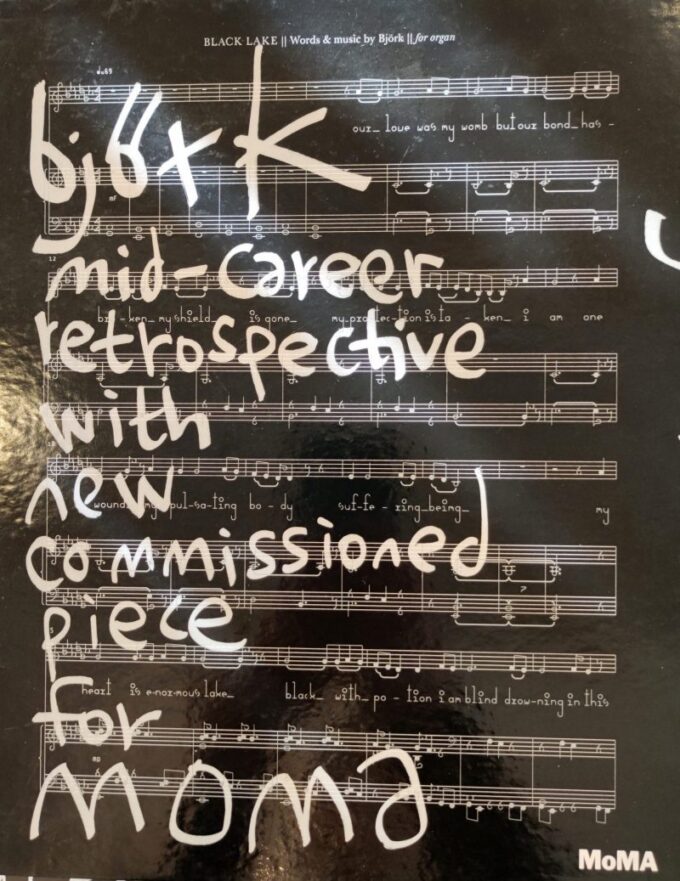 BLACK LAKE || Words & music by Björk || for organ
♩=69
our_ love was my womb but our bond_ has -
björk
mF
12
mid-career
bro - ken_ my shield_ is gone_ my protec-tion is ta - ken_ i am one
retrospective
with
new
wound_ my pul-sa-ting bo - dy suf-fe - ring_being_ my
commissioned
7
piece
heart is e-nor-mous lake_ black_ with_ po - tion i am blind drow-ning in this
for
mp
moma
MoMA